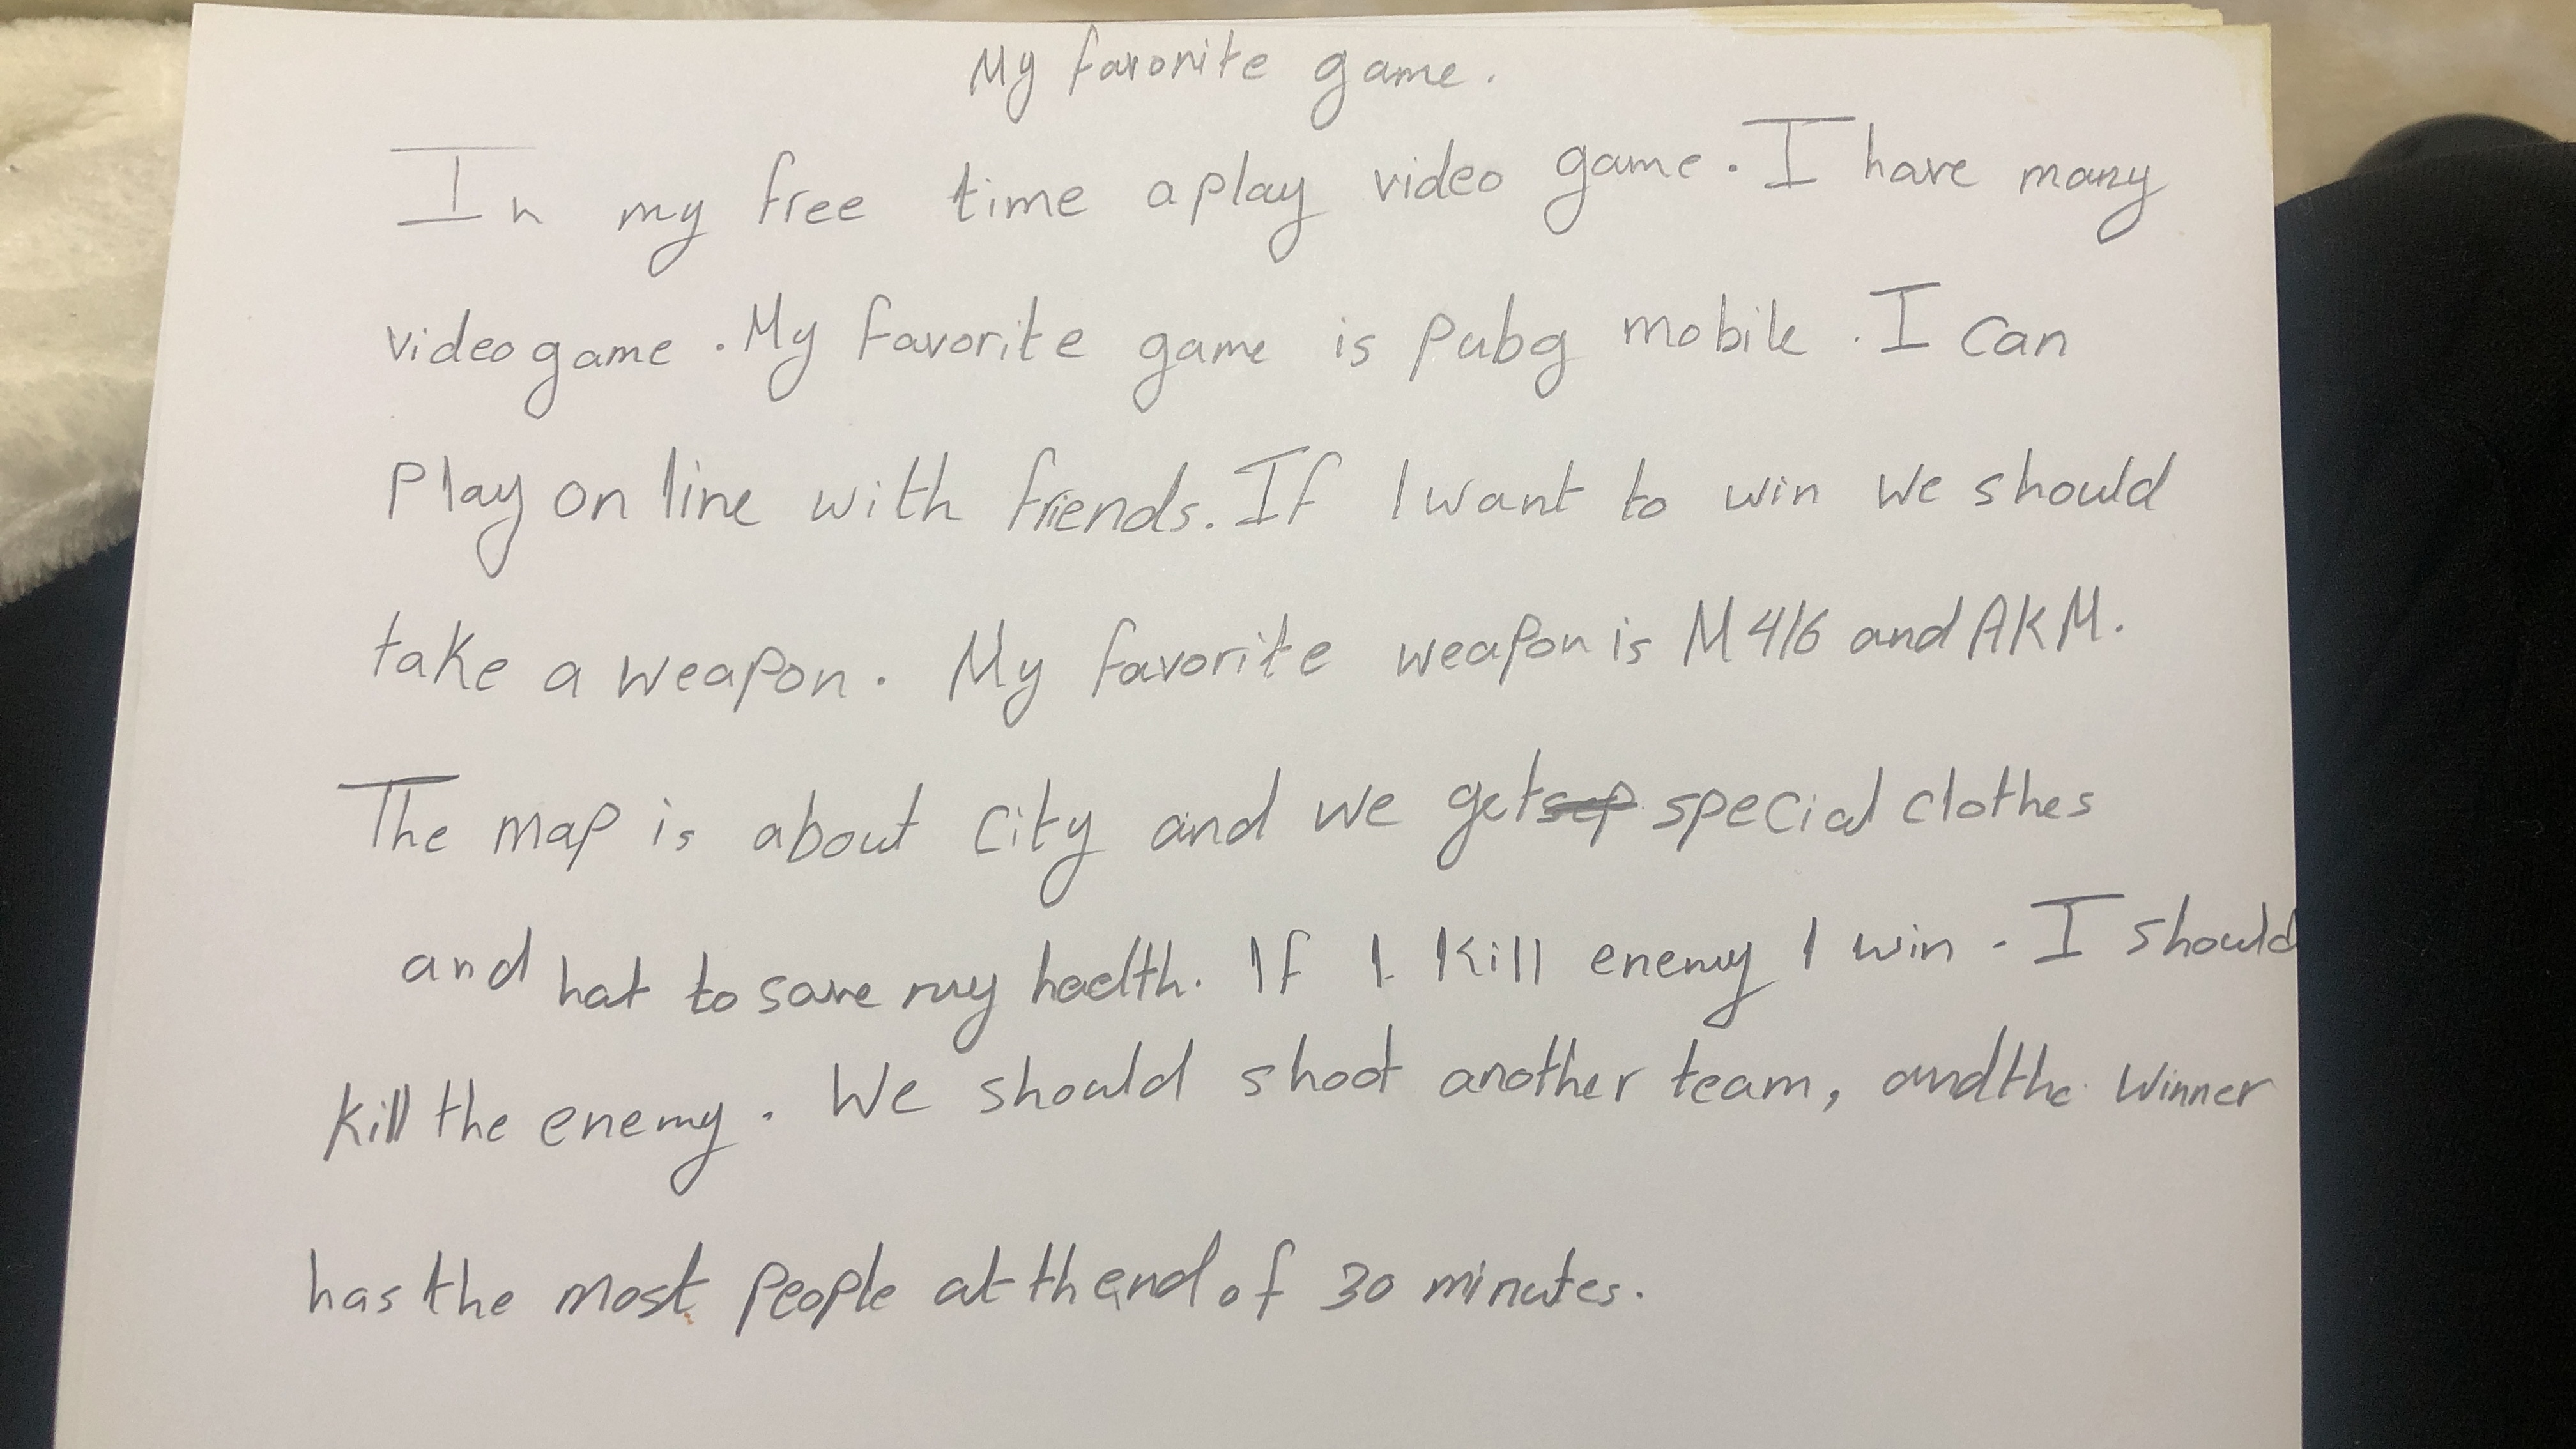 My favorite game.
In my free time a play video game. I have many
video game. My favorite game is Pubg mobile. I can
Play on line with friends. If I want to win we should
take a weapon. My favorite weapon is M416 and AKM.
The map is about city and we get special clothes
and hat to save my haelth. If I kill enemy I win. I should
kill the enemy. We should shoot another team, and the winner
has the most people at thend of 30 minutes.